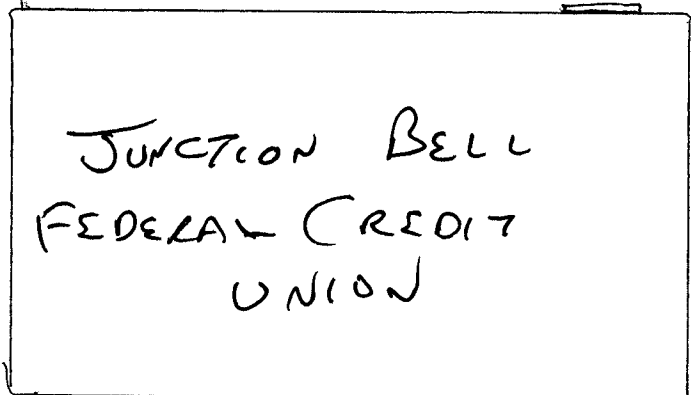 JUNCTION BELL
FEDERAL CREDIT
UNION